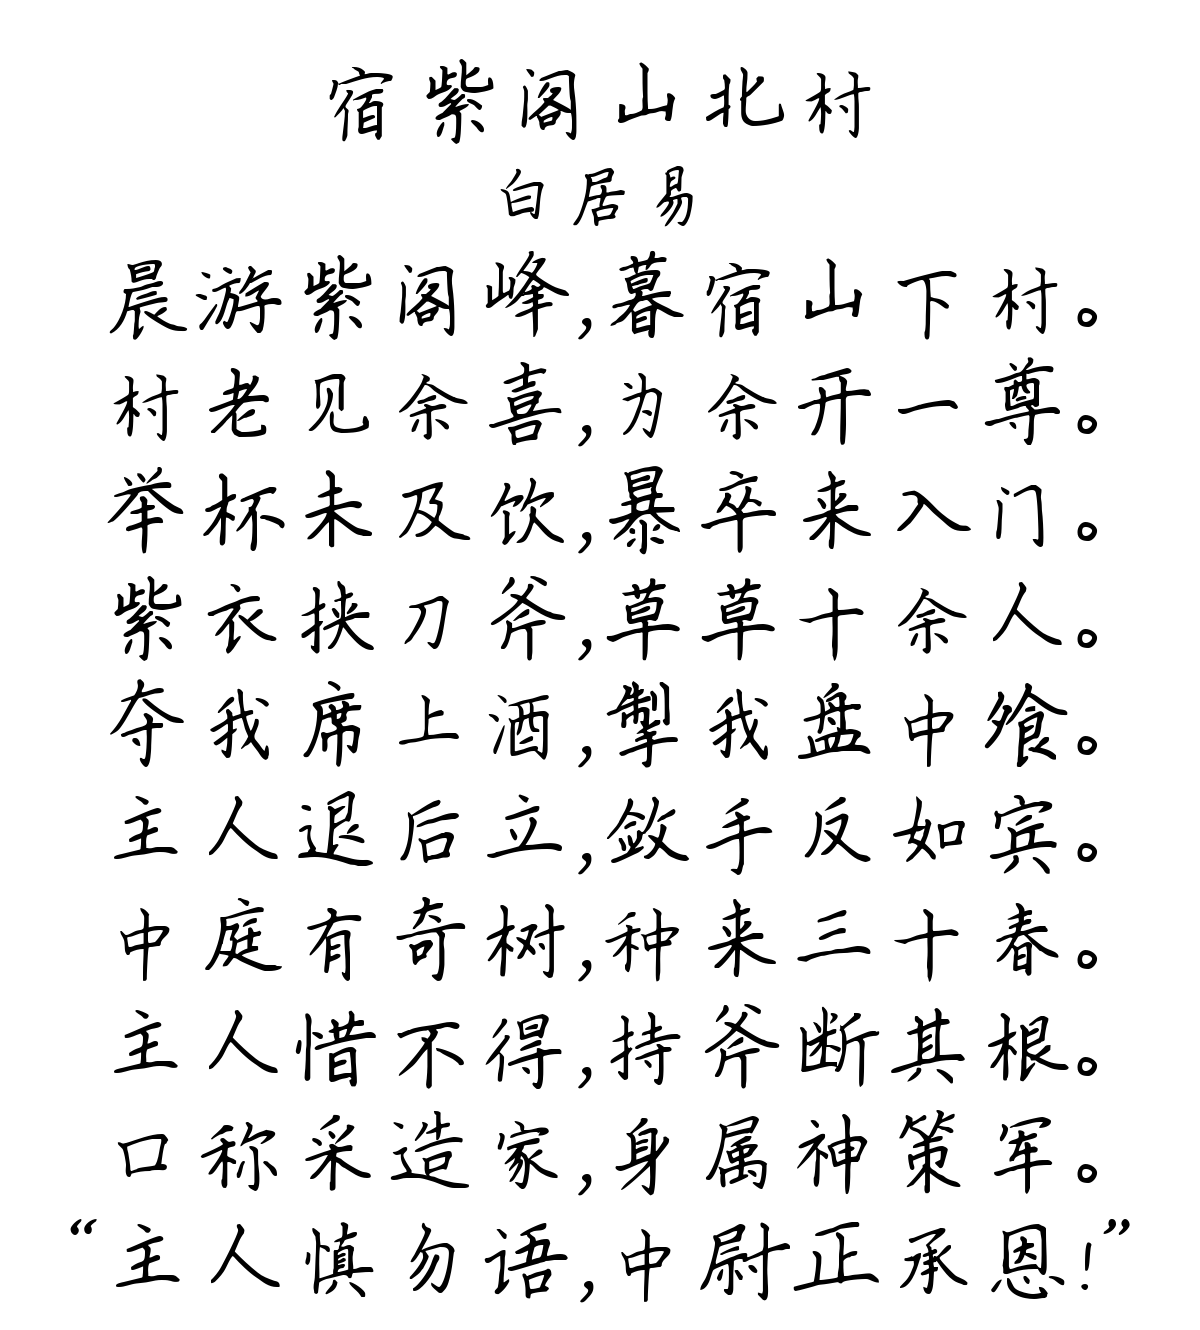 宿紫阁山北村
白居易
晨游紫阁峰,暮宿山下村。
村老见余喜,为余开一尊。
举杯未及饮,暴卒来入门。
紫衣挟刀斧,草草十余人。
夺我席上酒,掣我盘中飧。
主人退后立,敛手反如宾。
中庭有奇树,种来三十春。
主人惜不得,持斧断其根。
口称采造家,身属神策军。
“主人慎勿语,中尉正承恩!”